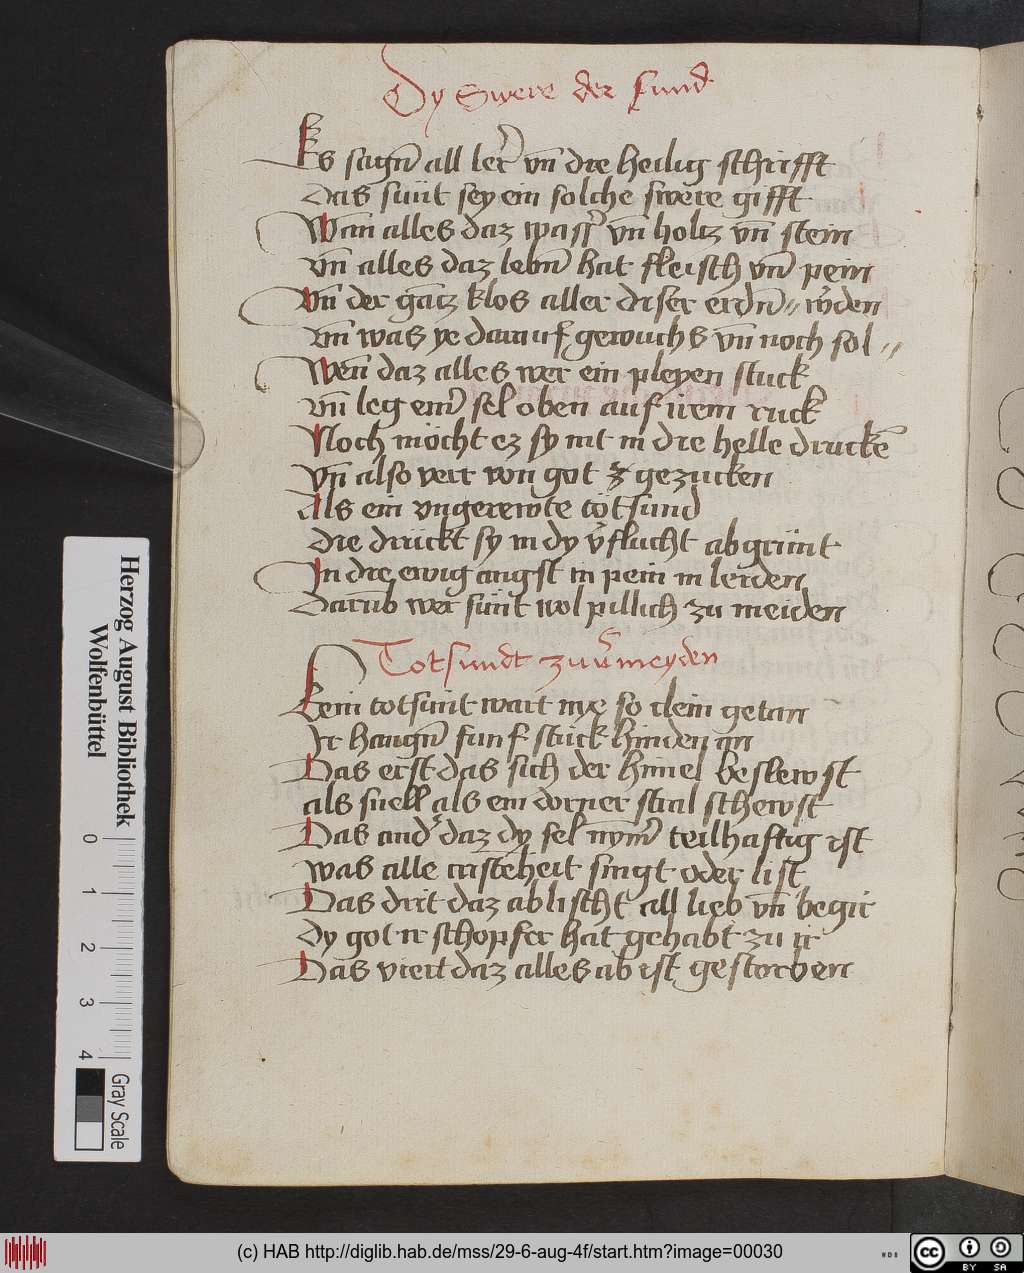 Dy Swere der sund
Es sagn̄ all ler̄ vn̄ die heilig schrifft
das sunt sey ein solche swere gifft
Wan alles daz wasſ̄ vn̄ holtz vn̄ stein
vn̄ alles daz lebn̄ hat fleisch vn̄ pein
Vn̄ der gācz klos aller diser erdn̄
vn̄ was ye darauf gewuchs vn̄ noch sol // wden
Wen̄ daz alles wer ein pleyen stuck
vn̄ leg ein̄ sel oben auf irem ruck
Noch möcht ez sy nit in die helle druckē
vn̄ also vert von got gezucken
Als ein vngerewte totsund
die drückt sy in dy v̄flucht abgrünt
In die ewig angst in pein in leiden
Darūb wer sünt wol pillich zu meiden
Totsundt zuv̄meyden
Kein totsünt wart nye so clein getan
Ir hangn̄ funf stuck hinden an
Das erst das sich der himel beslewst
als snell als ein dorner stral schewst
Das and̄ daz dy sel nym̄ teilhaftig ist
was alle cristeheit singt oder list
Das drit daz ablischt all lieb vn̄ begir
dy got ir schopfer hat gehabt zu ir
Das vierd daz alles ab ist gestorben
Herzog August Bibliothek
Wolfenbüttel
0 1 2 3 4
Gray Scale
(c) HAB http://diglib.hab.de/mss/29-6-aug-4f/start.htm?image=00030
WDB
cc BY SA